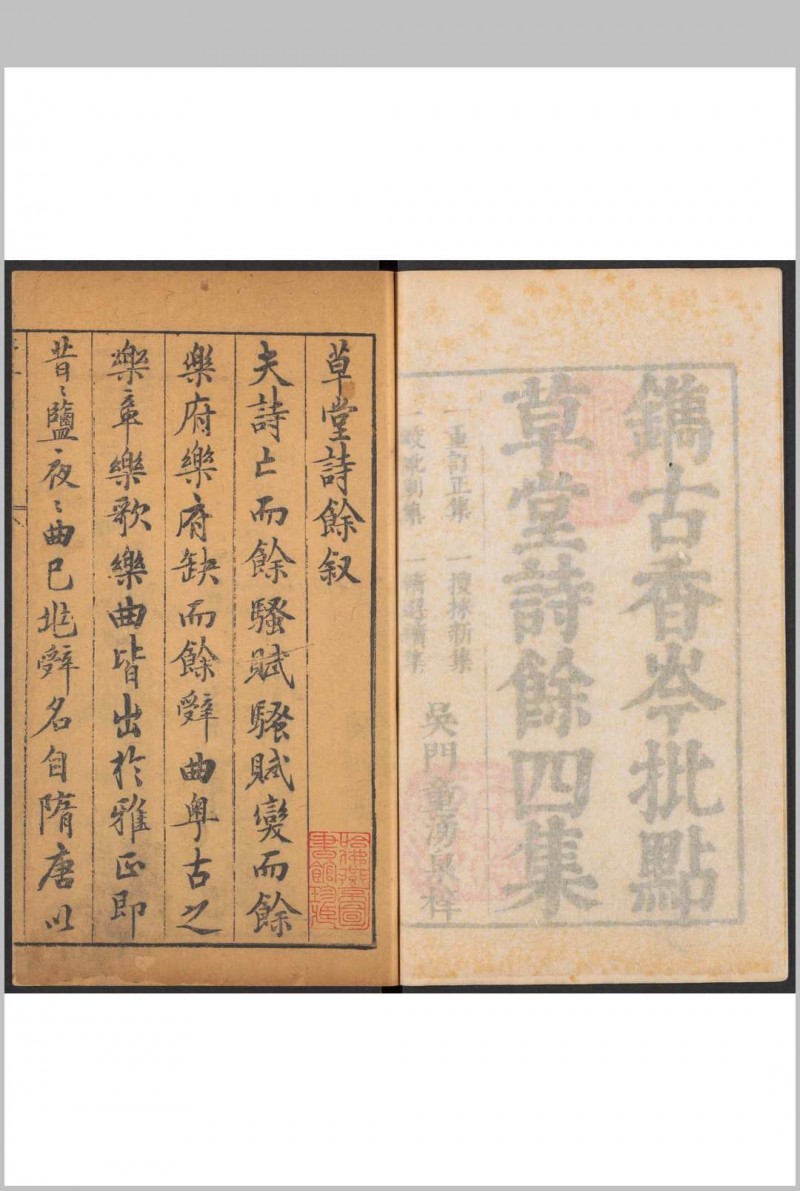 鐫古香岑批點
草堂詩餘四集
一重訂正集 一搜採新集
吳門童湧泉梓
草堂詩餘叙
夫詩亡而餘騷賦騷賦變而餘
樂府樂府缺而餘辭曲粤古之
樂章樂歌樂曲皆出於雅正即
昔〻鹽夜〻曲已
辭名自隋唐以